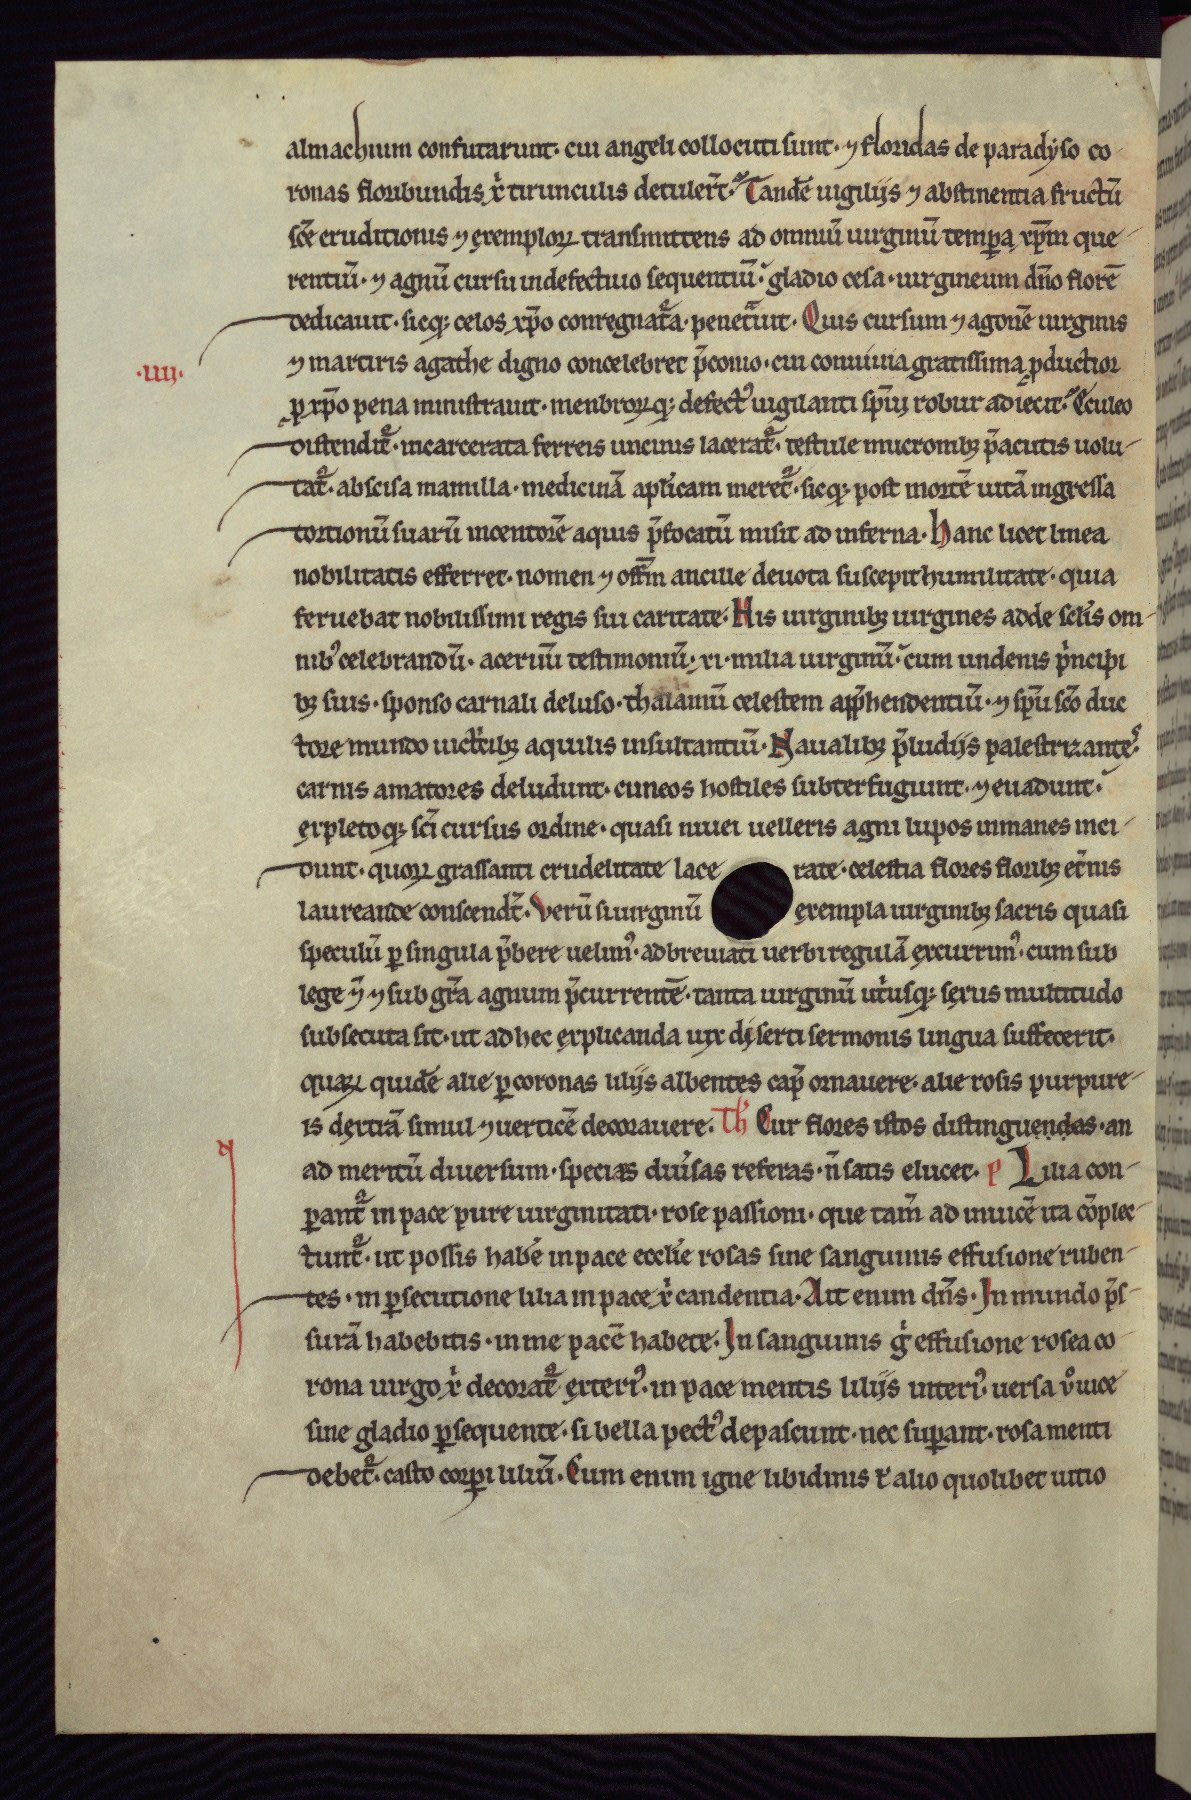 almachium confutarunt· cui angeli collocuti sunt· ⁊ floridas de paradyso co-
ronas floribundis xp̄i tirunculis detuler̄t· Tandē uigiliis ⁊ abstinentia fructū
sc̄e eruditionis ⁊ exemploꝝ transmittens ad omniū uirginū tempora xp̄m que-
rentiū· ⁊ agnū cursu indefectiuo sequentiū· gladio cesa· uirgineum dn̄o florē
dedicauit· sicq; celos xp̄o conregnat̄a penet̄uit· Quis cursum ⁊ agonē uirginis
·iiij·
⁊ martiris agathe digno concelebret p̄conio· cui conuiuia gratissima ꝓductior
ꝑ xp̄o pena ministrauit· menbroꝝq; defect᷒ uigilanti spiritui robur adiecit· Eculeo
distendit᷑· incarcerata ferreis uncinis lacerat᷑· testule mucronibꝫ p̄acutis uolu-
tat᷑· abscisa mamilla· medicinā apl̄icam meret᷑· sicq; post mortē uitā ingressa
tortionū suarū incentorē aquis p̄focatū misit ad inferna· Hanc licet linea
nobilitatis efferret· nomen ⁊ offm̄ ancille deuota suscepit humilitate· quia
feruebat nobilissimi regis sui caritate· His uirginibꝫ uirgines adde scl̄is om-
nib᷒ celebrandū· aceruū testimoniū· xi· milia uirginū· cum undenis p̄ncipi
bꝫ suis· sponso carnali deluso· thalamū celestem app̄hendentiū· ⁊ spū sc̄o duc
tore mundo uictricibꝫ aquilis insultantiū· Naualibꝫ p̄ludiis palestrizantes
carnis amatores deludunt· cuneos hostiles subterfugiunt· ⁊ euadunt·
expletoq; sc̄i cursus ordine· quasi niuei uelleris agni lupos inmanes inci-
dunt· quoꝝ grassanti crudelitate lace rate· celestia flores floribꝫ et̄nis
laureande conscendt̄· Verū si uirginū exempla uirginibꝫ sacris quasi
speculū ꝑ singula p̄bere uelim᷒· adbreuiati uerbi regulā excurrim᷒· cum sub
lege n̄ ⁊ sub gr̄a agnum p̄currentē· tanta uirginū ut̄usq; sexus multitudo
subsecuta sit· ut ad hec explicanda uix diserti sermonis lingua suffecerit·
quaꝝ quidē alie ꝑ coronas liliis albentes cap̄ ornauere· alie rosis purpure-
is dextrā simul ⁊ uerticē decorauere· Th Cur flores istos distinguendos· an
ad meritū diuersum· species diu̅sas referas· n̄ satis elucet· P Lilia con-
ꝑant᷑ in pace pure uirginitati· rose passioni· que tam̄ ad inuicē ita cōplec-
tunt᷑· ut possis habē in pace ecclīe rosas sine sanguinis effusione ruben-
tes· in ꝑsecutione lilia in pace xp̄i candentia· Ait enim dn̄s· In mundo p̄s-
surā habebitis· in me pacē habete· In sanguinis g̊ effusione rosea co-
rona uirgo xp̄i decorat᷑ exteri᷒· in pace mentis liliis interi᷒· uersa u̅ uice
sine gladio ꝑsequente· si bella pect᷒ depascunt· nec suꝑant· rosa menti
debet᷑· casto corꝑi liliū· Cum enim igne libidinis ł alio quolibet uitio